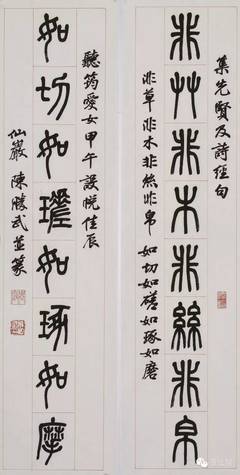 集先賢及詩經句
非艸非木非絲非帛
非草非木非絲非帛 如切如磋如琢如磨
聽筠愛女甲午設帨佳辰
如切如瑳如琢如摩
仙巖陳勝武並篆